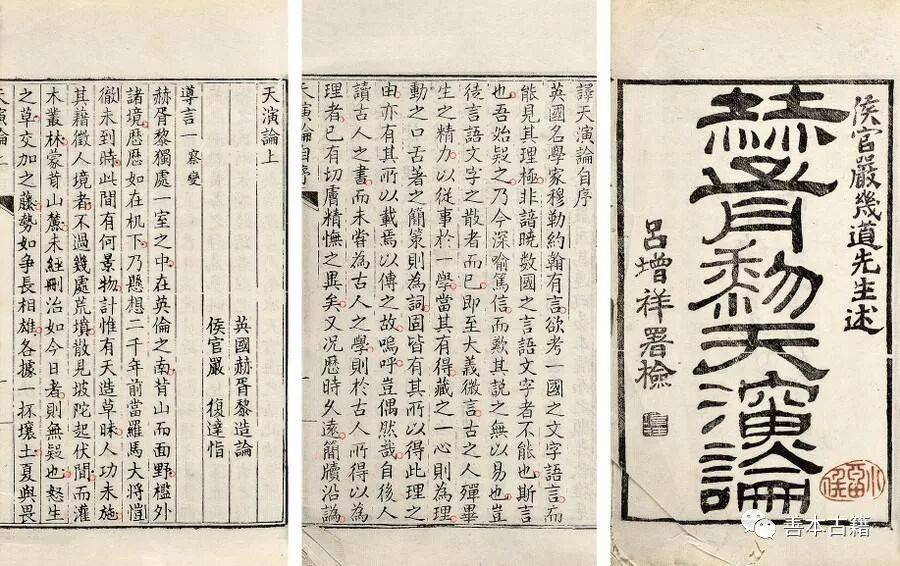 侯官嚴幾道先生述
赫胥黎天演論
呂增祥署檢
譯天演論自序
英國名學家穆勒約翰有言欲考一國之文字語言而
能見其理極非諳曉數國之言語文字者不能也斯言
也吾始疑之乃今深喻篤信而歎其說之無以易也豈
徒言語文字之散者而已即至大義微言古之人殫畢
生之精力以從事於一學當其有得藏之一心則為理
動之口舌著之簡策則為詞固皆有其所以得此理之
由亦有其所以載焉以傳之故嗚呼豈偶然哉自後人
讀古人之書而未嘗為古人之學則於古人所得以為
理者已有切膚精憮之異矣又况歷時久遠簡牘沿譌
天演論自序
天演論上
英國赫胥黎造論
侯官嚴 復達恉
導言一 察變
赫胥黎獨處一室之中在英倫之南背山而面野檻外
諸境歷歷如在机下乃懸想二千年前當羅馬大將愷
徹未到時此間有何景物計惟有天造草昧人功未施
其藉徵人境者不過幾處荒墳散見坡陀起伏間而灌
木叢林蒙茸山麓未經刪治如今日者則無疑也怒生
之草交加之藤勢如爭長相雄各據一抔壤土夏與畏
天演論上
善本古籍